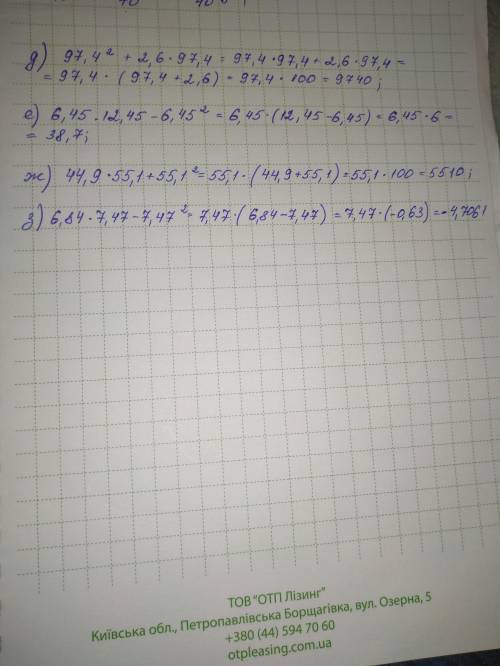 д) 97,4² + 2,6 · 97,4 = 97,4 · 97,4 + 2,6 · 97,4 =
= 97,4 · (97,4 + 2,6) = 97,4 · 100 = 9740;
е) 6,45 · 12,45 - 6,45² = 6,45 · (12,45 - 6,45) = 6,45 · 6 =
= 38,7;
ж) 44,9 · 55,1 + 55,1² = 55,1 · (44,9 + 55,1) = 55,1 · 100 = 5510;
з) 6,84 · 7,47 - 7,47² = 7,47 · (6,84 - 7,47) = 7,47 · (-0,63) = -4,7061
ТОВ "ОТП Лізинг"
Київська обл., Петропавлівська Борщагівка, вул. Озерна, 5
+380 (44) 594 70 60
otpleasing.com.ua